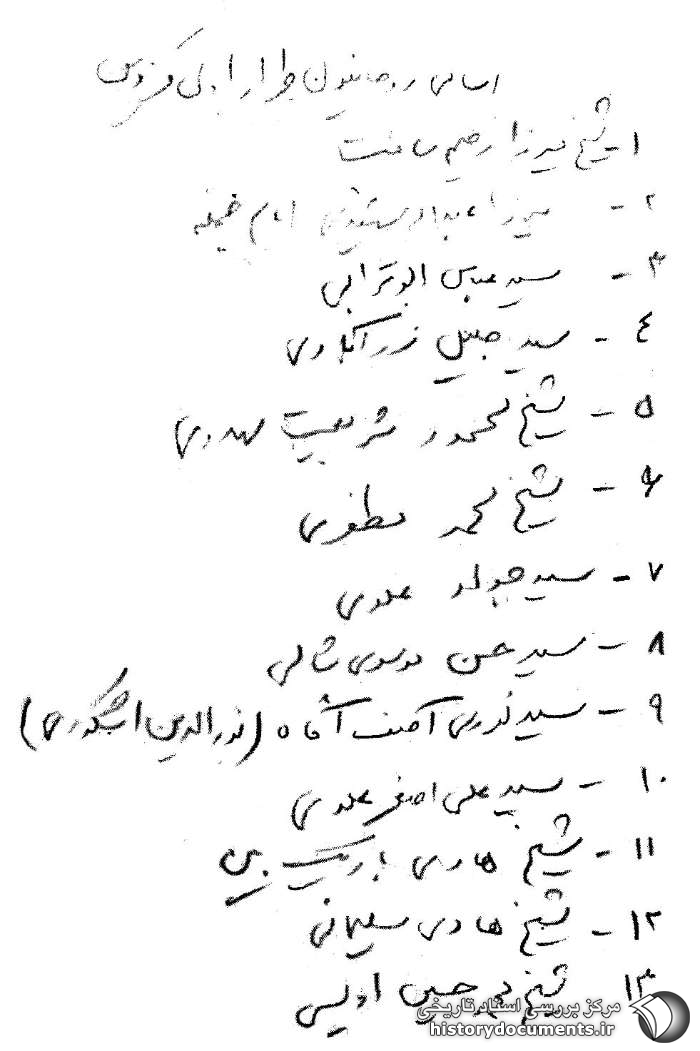 اسامی روحانیون طراز اول قزوین
۱- شیخ میرزا رحیم سامت
۲- میرزا امام جمعه
۳- سید عباس ابوترابی
٤- سید جلیل زرآبادی
۵- شیخ محمود شریعت مهدوی
۶- شیخ محمد مظفری
۷- سید جواد علوی
۸- سید حسن موسوی شالی
۹- سید نوری آصف آگاه (نورالدین اشکوری)
۱۰- سید علی اصغر علوی
۱۱- شیخ هادی باریک بین
۱۲- شیخ هادی سلیمانی
۱۳ شیخ حسین اویسی
مرکز بررسی اسناد تاریخی
historydocuments.ir